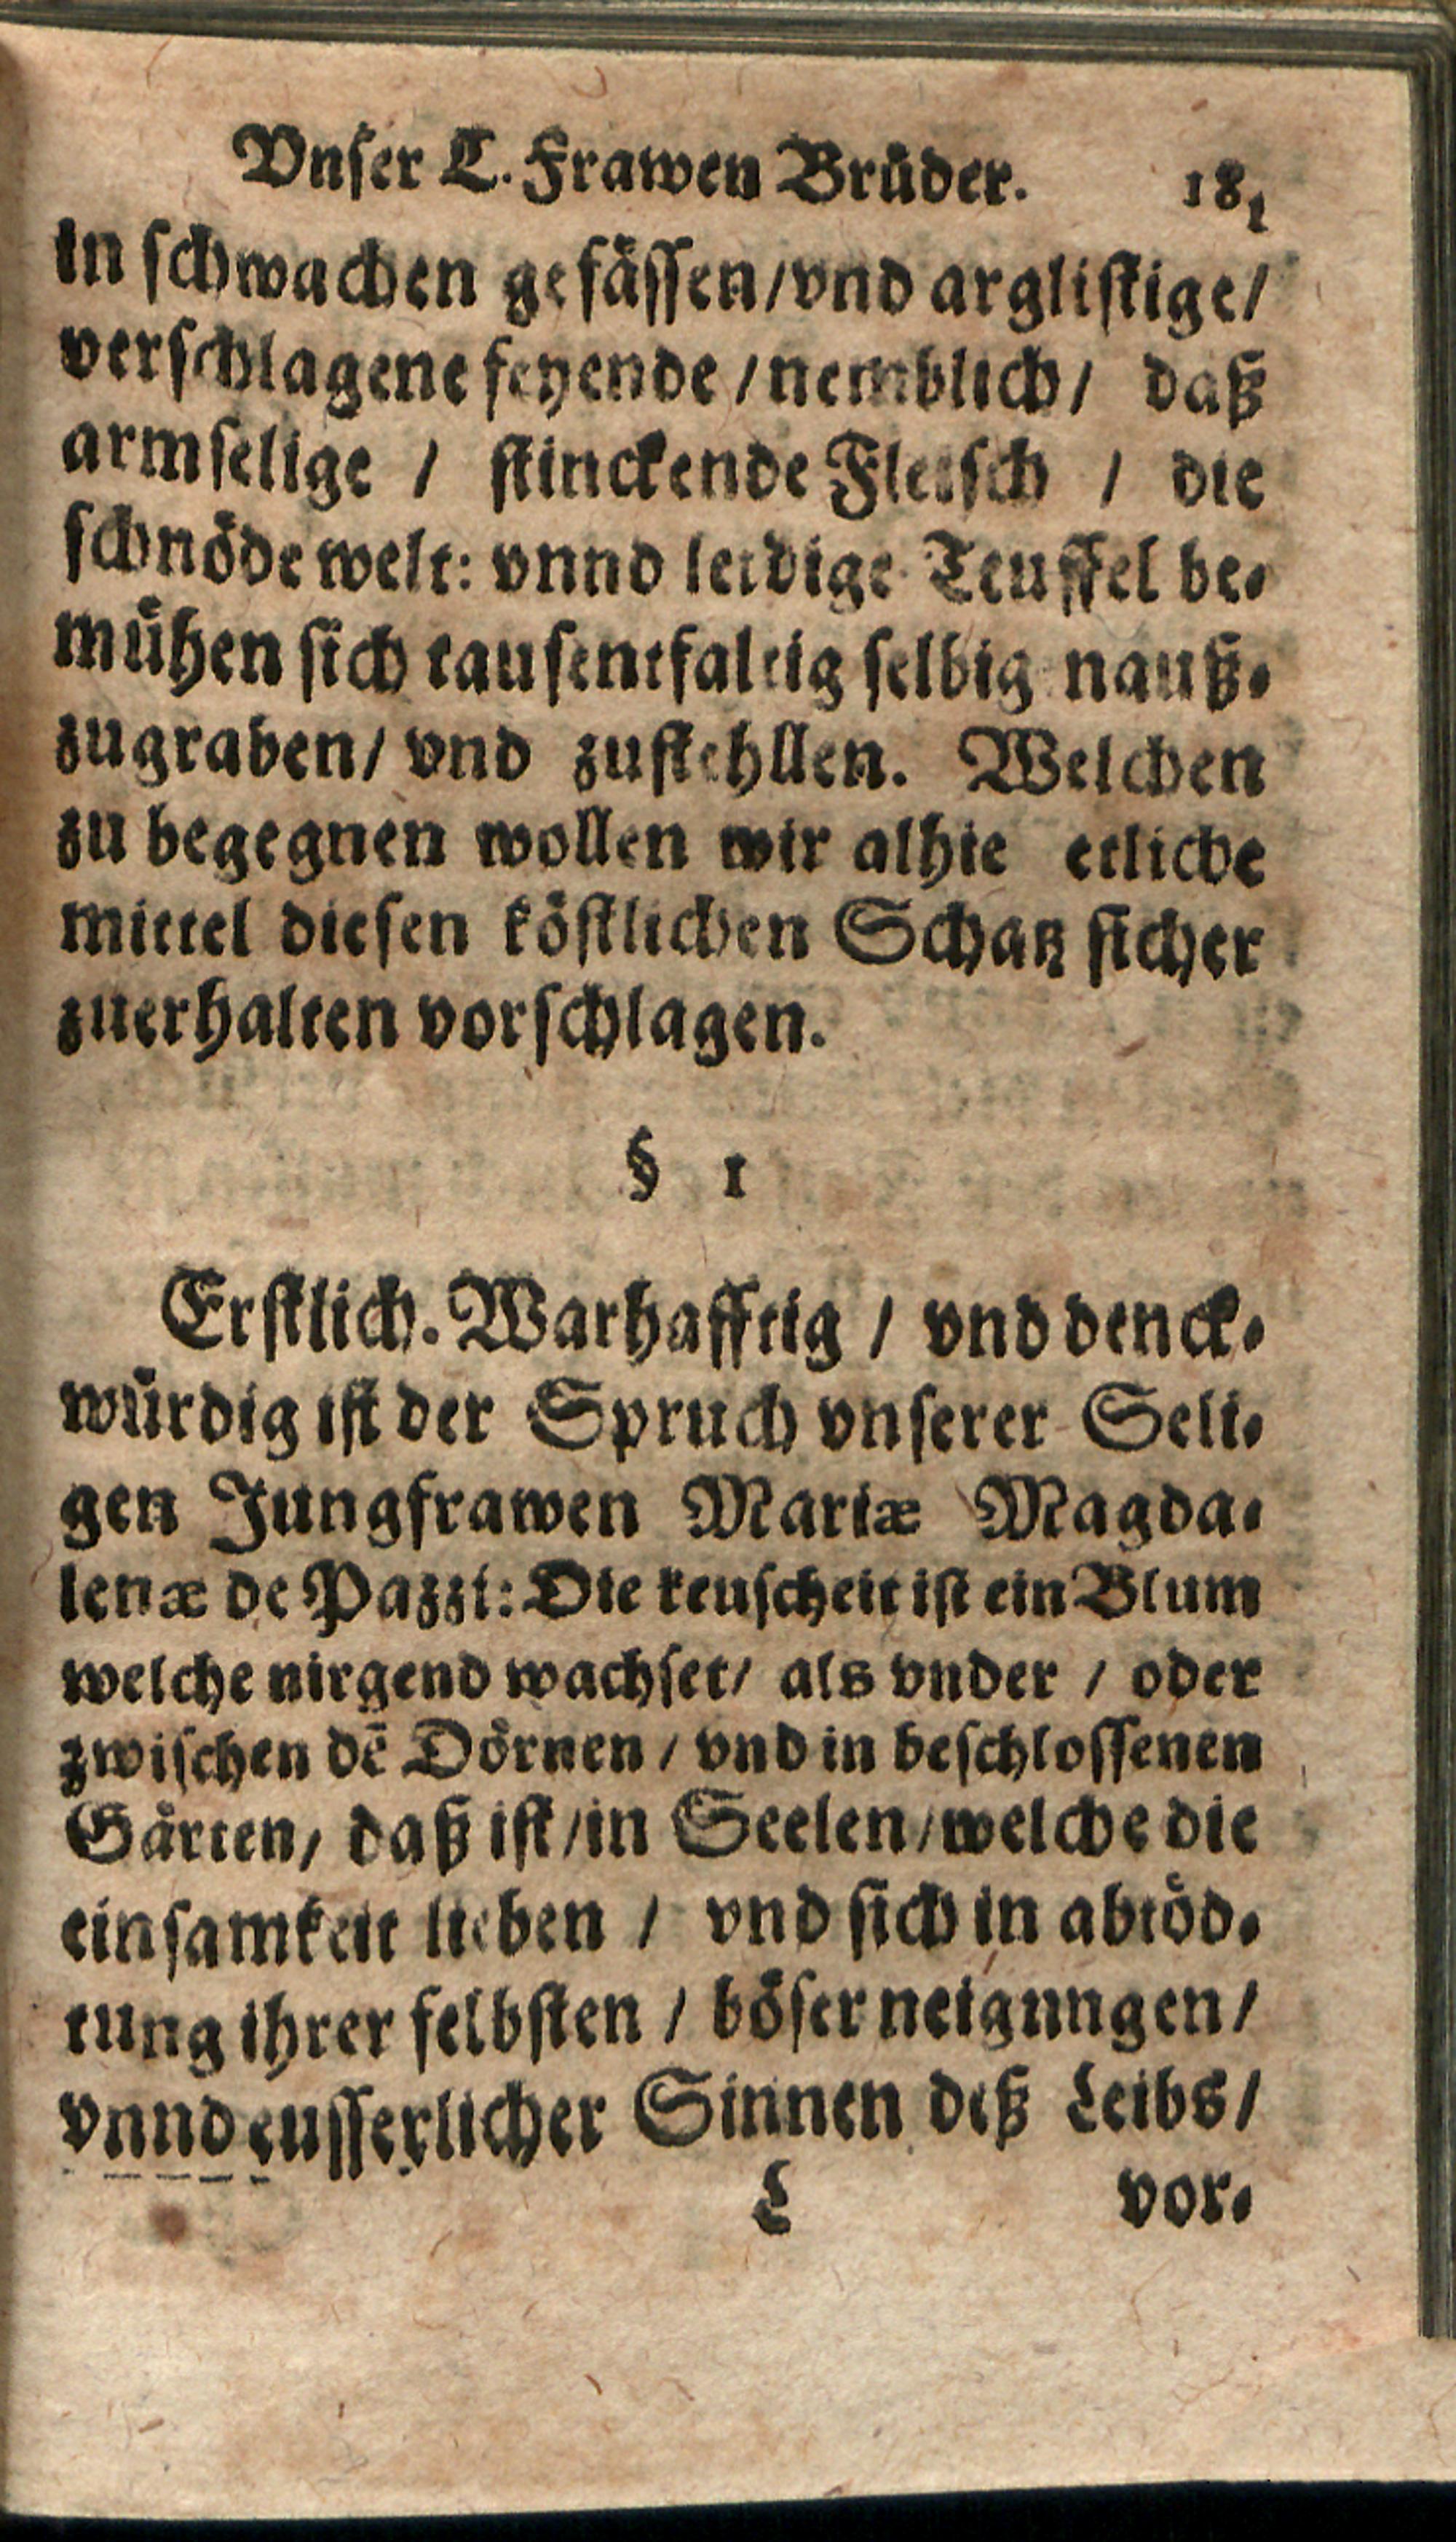 Vnser L. Frawen Brüder. 181
in schwachen gefässen/vnd arglistige/
verschlagene feyende / nemblich / daß
armselige / stinckende Fleisch / die
schnöde welt: vnnd leidige Teuffel be-
mühen sich tausentfaltig selbig nauß-
zugraben/ vnd zustehllen. Welchen
zu begegnen wollen wir alhie etliche
mittel diesen köstlichen Schatz sicher
zuerhalten vorschlagen.
§ 1
Erstlich. Warhafftig / vnd denck-
würdig ist der Spruch vnserer Seli-
gen Jungfrawen Mariæ Magda-
lenæ de Pazzi: Die keuscheit ist ein Blum
welche nirgend wachset/ als vnder / oder
zwischen dē Dörnen / vnd in beschlossenen
Gärten/ daß ist/in Seelen/welche die
einsamkeit lieben / vnd sich in abtöd-
tung ihrer selbsten / böser neigungen/
vnnd eusserlicher Sinnen deß Leibs/
L vor-